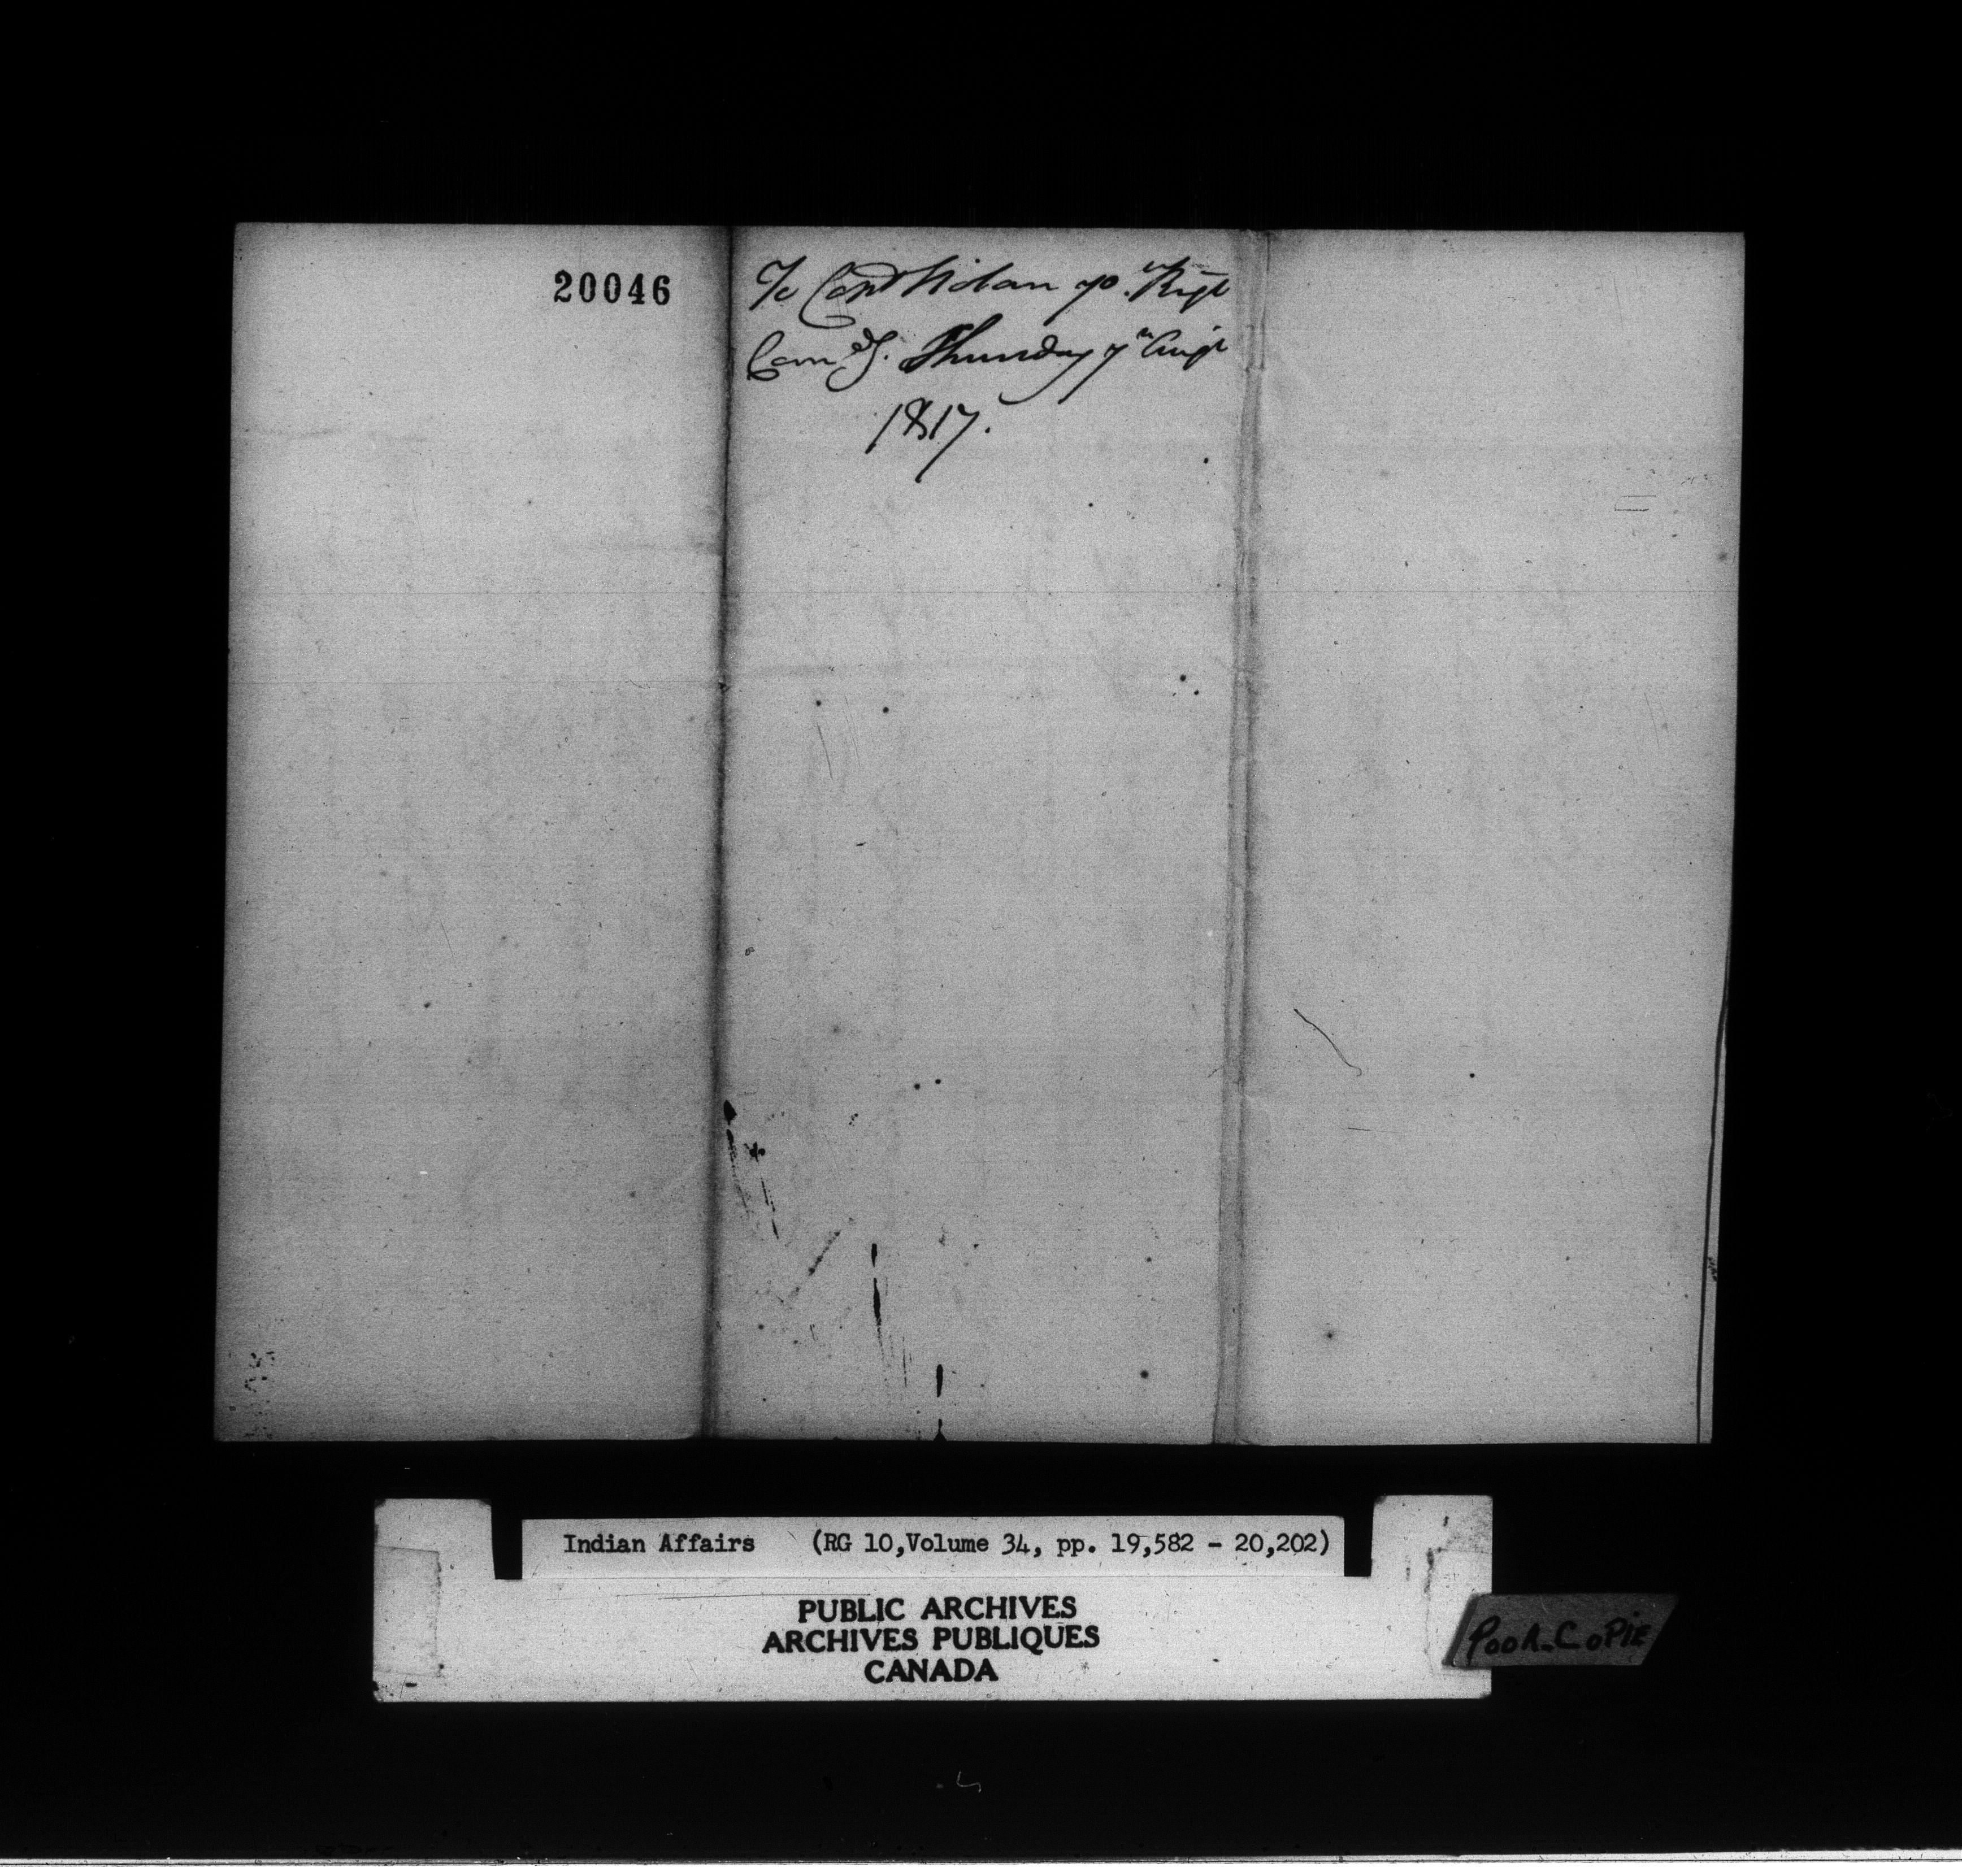 20046
To Capt Nolan 70th Regt
Comdg. Thursday 7th Augt
1817.
Indian Affairs (RG 10, Volume 34, pp. 19,582 - 20,202)
PUBLIC ARCHIVES
ARCHIVES PUBLIQUES
CANADA
POOR-COPIE